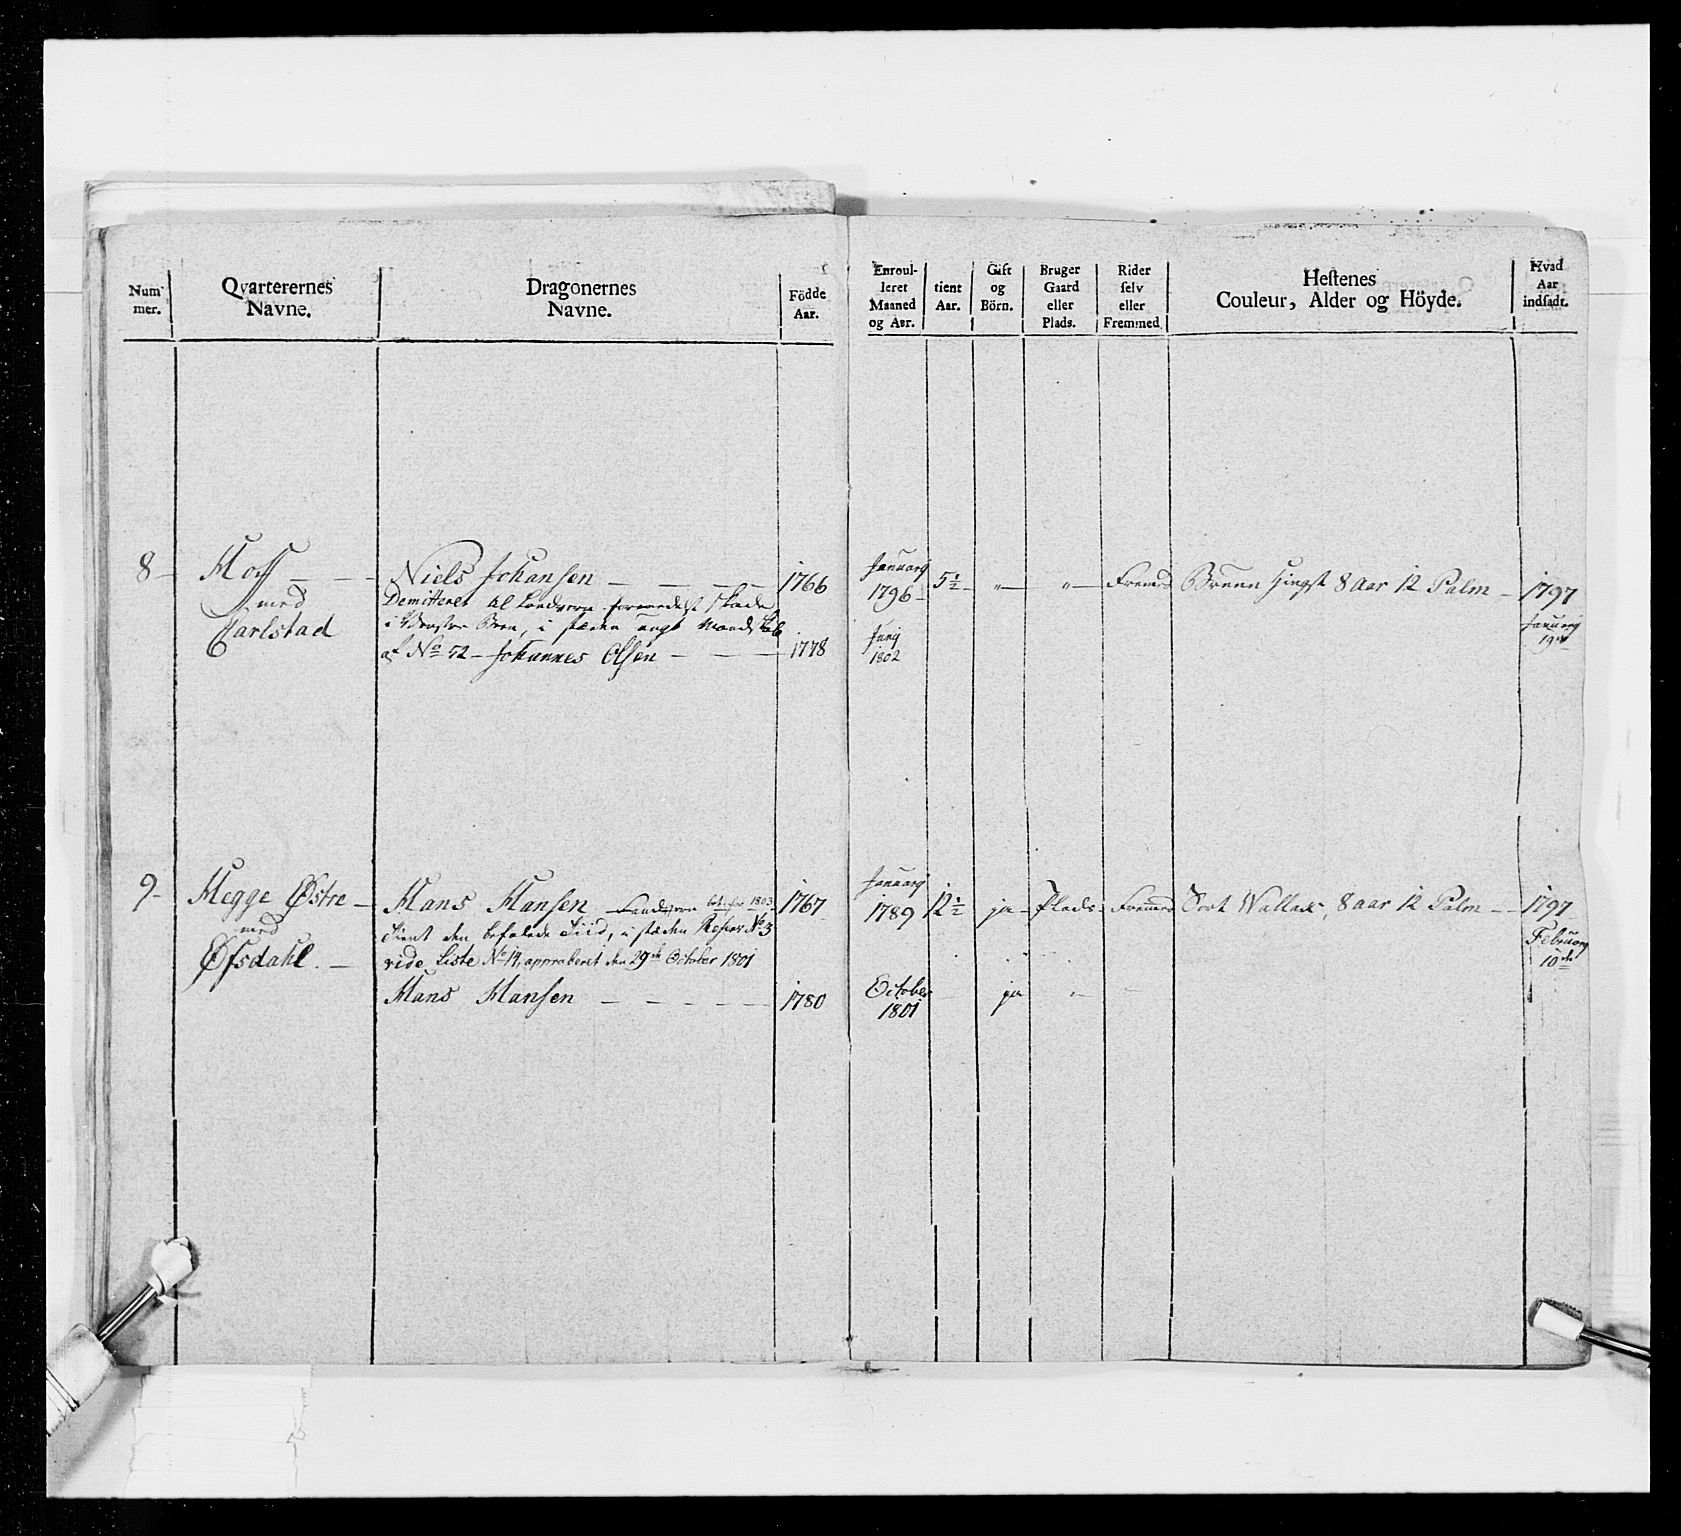 Num-
mer.
Qvarterernes
Navne.
Dragonernes
Navne.
Födde
Aar.
Enroul-
leret
Maaned
og Aar.
tient
Aar.
Gift
og
Börn.
Bruger
Gaard
eller
Plads.
Rider
selv
eller
Fremmed
Hestenes
Couleur, Alder og Höyde.
Hvad
Aar
indsadt.
8 Hoff
med
Carlstad
Niels Johansen 1766
Demitteret til Landvern formedelst skade
i Venstre Been, i stæden ungt Mandskab
af No 52 Johannes Olsen 1778
Januarij
1796 5½ " " Fremd Bruun Hingst 8 Aar 12 Palm 1797
Januarij
19de
Junij
1802
9 Hegge Østre
med
Øfsdahl.
Hans Hansen Landvern 1803 1767
Tient den befalede Tiid, i stæden Reserv No 3
vide Liste No 14, approberet den 29de October 1801
Hans Hansen 1780
Januarij
1789 12½ ja Plads Fremmed Sort Wallak, 8 aar 12 Palm 1797
Februarij
10de
October
1801 ja "